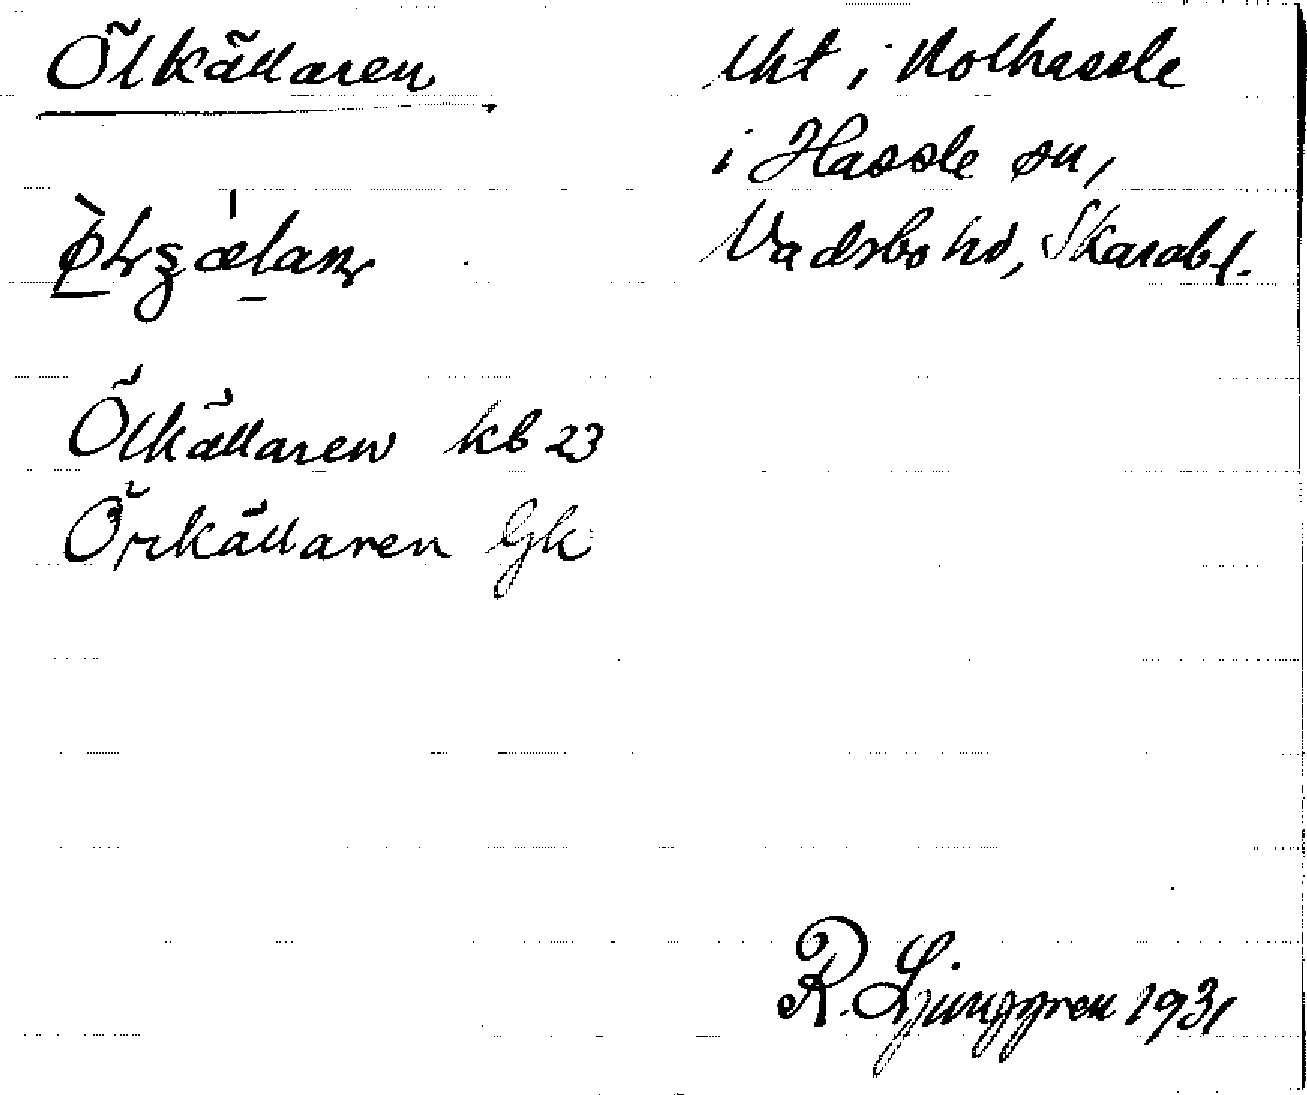 Ölkällaren
lht i Nolhassle
i Hassle sn,
Vadsbo hd, Skarab.l.
Ölkällaren kb 23
Örkällaren Gk
R. Ljunggren 1931